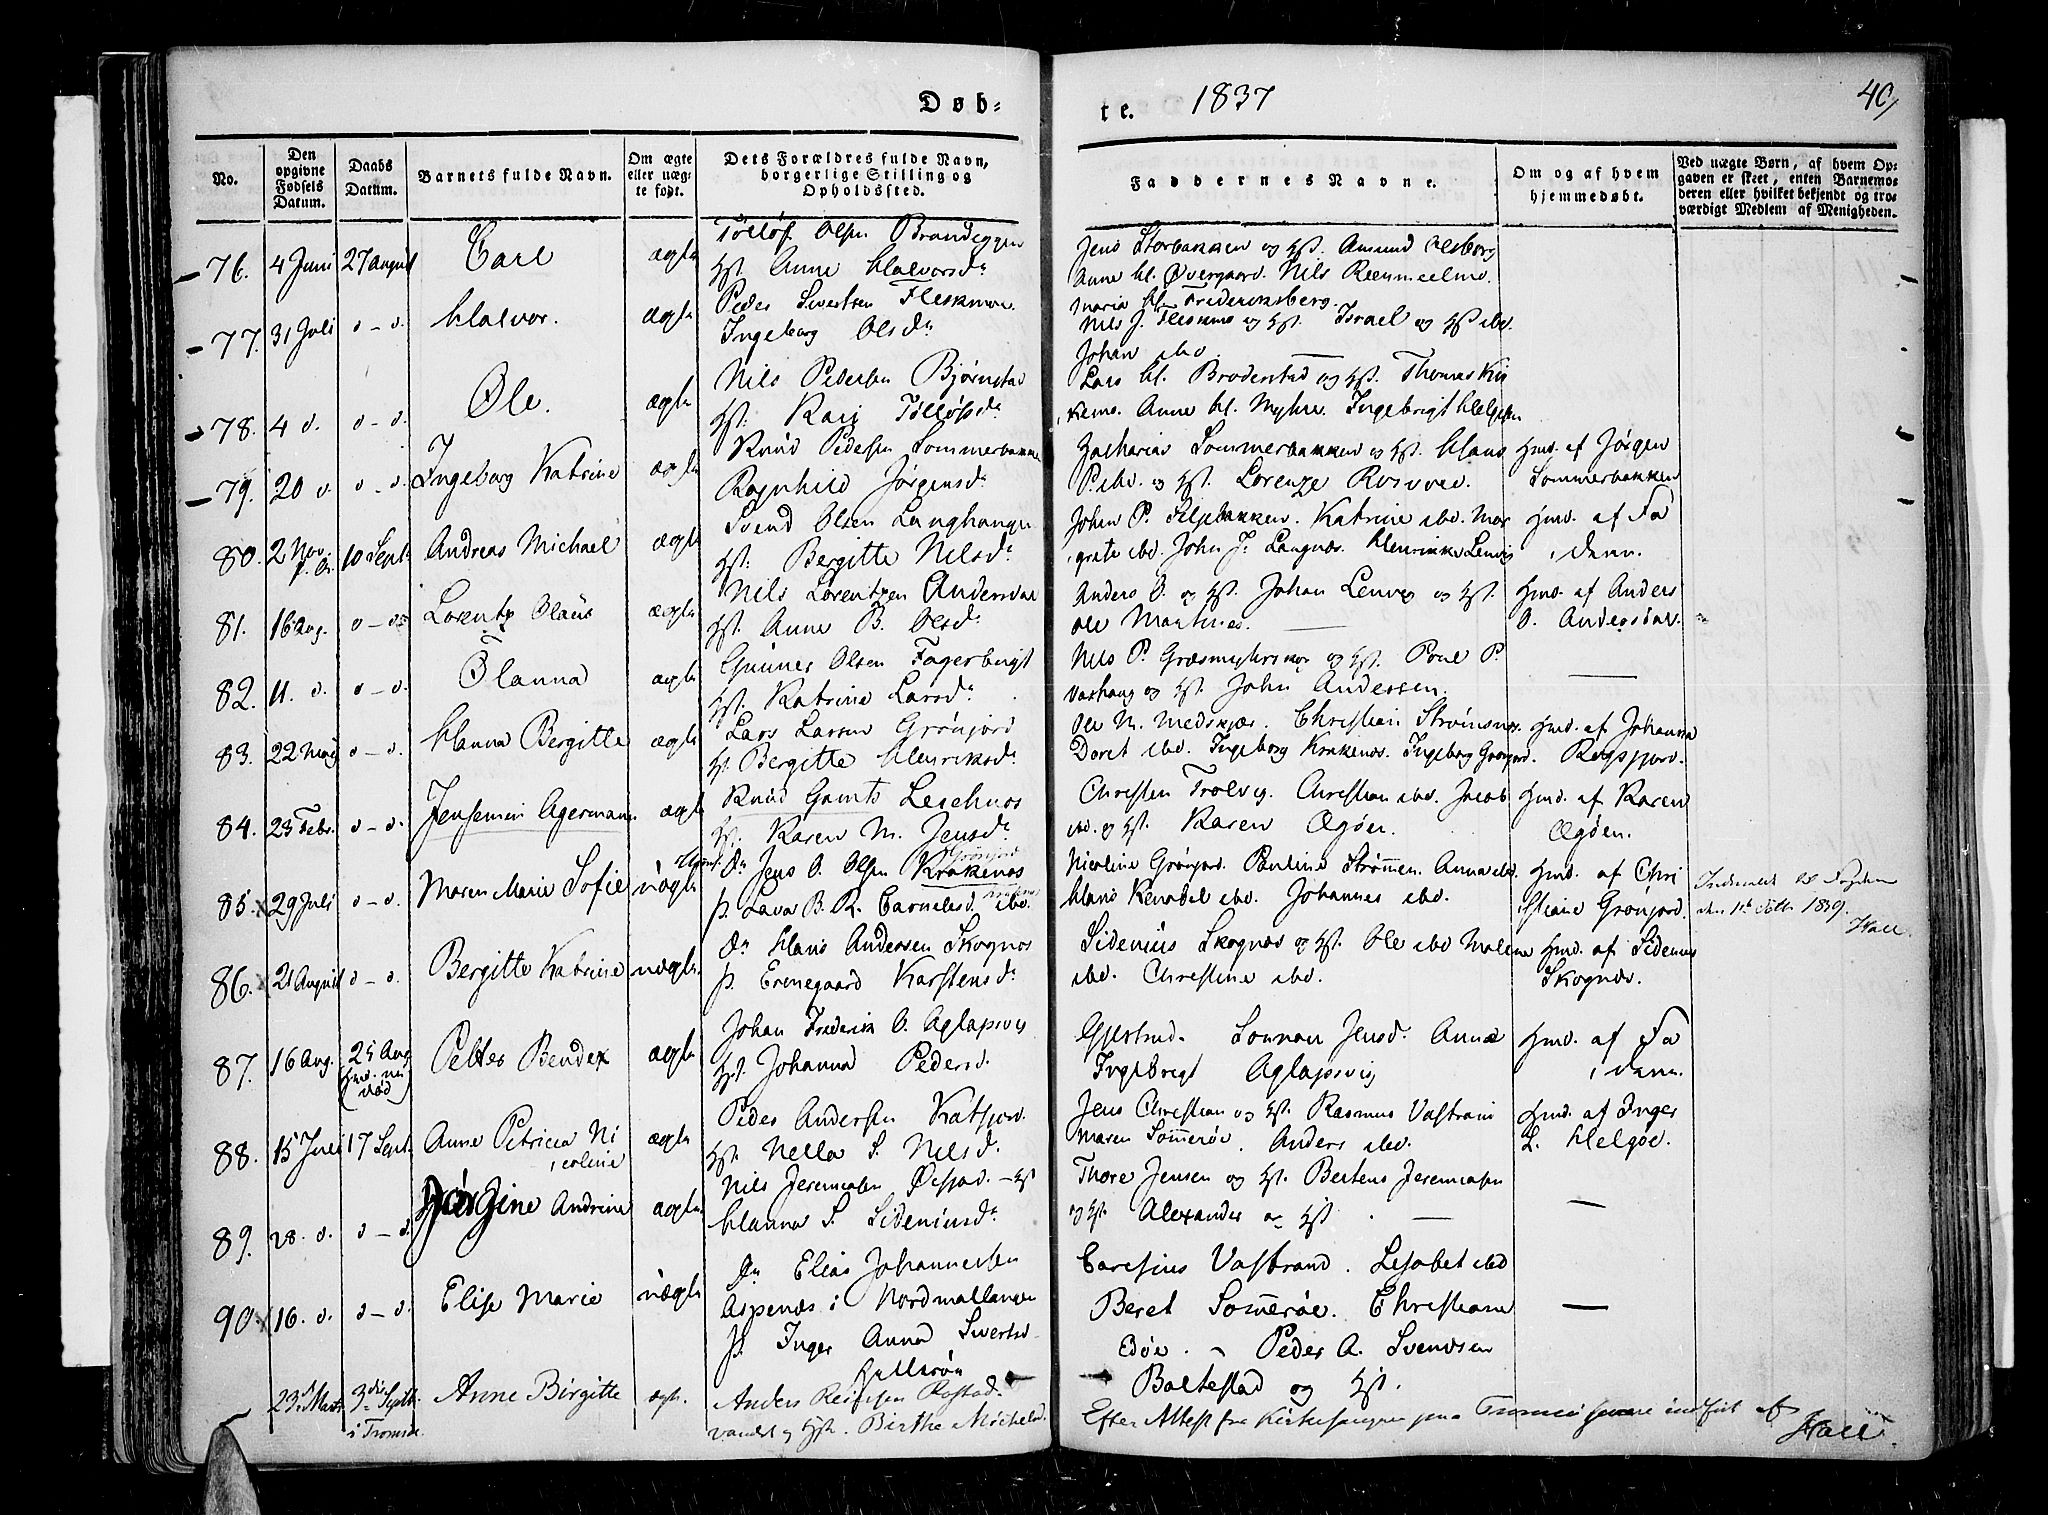 Døb-
te. 1837
40
No.
Den opgivne Fødsels Datum.
Daabs Datum.
Barnets fulde Navn.
Om ægte eller uægte født.
Dets Forældres fulde Navn, borgerlige Stilling og Opholdssted.
Faddernes Navne.
Om og af hvem hjemmedøbt.
Ved uægte Børn, af hvem Opgaven er skeet, enten Barnemoderen eller hvilket bekjendt og troværdigt Medlem af Menigheden.
76. 4 Juni 27 August Carl ægte
Tølløf Olsen Brandeggen
Hst. Anne Halvorsd.
Jens Storbakken og Hst. Amund Olsborg
Anne H. Øvergaard. Nils Rœnmælmo.
Maria Frederiksberg.
77. 31 Juli d - d. Halvor. ægte
Peder Sivertsen Fleskmoe
Ingeborg Olsd.
Nils J. Fleskmo og Hst. Israel og Hst ibd.
Johan ibd.
78. 4 d. d - d. Ole. ægte
Nils Pedersen Bjørnstad
Hst. Kari Tølløfsd.
Lars H. Broderstad og Hst. Thomas Kir
kemo. Anne H. Myhre. Ingebrigt Helgesen
79. 20 d. d - d. Ingeborg Katrine ægte
Knud Pedersen Sommerbakken
Ragnhild Jørgensd.
Zacharias Sommerbakken og Hst. Hans
P. ibd. og Hst. Lorenze Rosvold.
Hmd. af Jørgen
Sommerbakken
80. 2 Nov. f. A. 10 Sept. Andreas Michael ægte
Svend Olsen Langhaugen
Hst. Bergitte Nilsd.
Johan P. Filpbakken. Katrine ibd. Mar
grete ibd. John J. Langnæs. Henrikke Lenvig
Hmd. af Fa
deren.
81. 16 Aug. d - d. Lorentz Olaus ægte
Nils Lorentzen Andersdal
Hst. Anne B. Olsd.
Anders O. og Hst. Johan Lenvig og Hst.
Ole Martines.
Hmd. af Anders
O. Andersdal.
82. 11. d. d - d. Olanna ægte
Gunner Olsen Fagerbugt
Hst. Katrine Larsd.
Nils P. Græsmyhrskog og Hst. Poul P.
Vaxhaug og Hst. John Andersen.
83. 22 Maj d - d. Hanna Bergitte ægte
Lars Larsen Grønjord
Hst. Bergitte Henriksd.
Ole M. Medskjær. Christian Strømsnæs.
Doret ibd. Ingeborg Krakenæs. Ingeborg Grønjord.
Hmd. af Johanna
Rogsfjord.
84. 23 Febr. d - d. Jensemin Agermann ægte
Knud Gamts Leschnos
Hst. Karen M. Jensd.
Christen Trolvig. Christian ibd. Jacob
ibd. og Hst. Karen Ægøen.
Hmd. af Karen
Ægøen.
85. 29 Juli d - d. Maren Marie Sofie uægte
Jens O. Olsen Krakenos
Grønjord
p. Lava B. R. Carnelesd. ibd.
Nicoline Grønjord. Pauline Strømmen. Anna ibd.
Hans Kenabel ibd. Johannes ibd.
Hmd. af Chri
stiane Grønjord.
Indmeldt til Fogden
den 1st Oktb. 1839.
Hall.
86. 21 August d - d. Bergitte Katrine uægte
Hans Andersen Skognos
p. Erenegaard Karstensd.
Sidenius Skognæs og Hst. Ole ibd Malene
ibd. Christine ibd.
Hmd. af Sidenius
Skognæs.
87. 16 Aug. 25 Aug. (Hmd. nu død) Petter Bendex ægte
Johan Frederik O. Aglapsvig
Hst. Johanna Pedersd.
Gjestrud. Lonnau Jensd. Anna
Ingebrigt Aglapsvig
Hmd. af Fa
deren.
88. 15 Juli 17 Sept. Anne Petricia Ni
coline ægte
Peder Andersen Katfjord.
Hst. Nella S. Nilsd.
Jens Christian og Hst. Rasmus Vastrand
Maren Sommerøe. Anders ibd.
Hmd. af Inger
L. Helgøe.
89. 28. d. d - d. Jørgine Andrine ægte
Nils Jeremiasen Øifjord. - Hst
Hanna S. Sideniusd.
Thore Jensen og Hst. Bertens Jeremiasen
og Hst. Alexander og Hst.
90. 16. d. d - d. Elise Marie uægte
Elias Johannesen
Aspenæs i Nordmallangen
p. Inger Anna Sivertsd.
Hellerøn
Caresius Vastrand. Lisabet ibd
Beret Sommerøe. Christiane
Edøe. - Peder A. Svendsen
Baltestad og Hst.
23. Marts 3die Septb. i Tromsø Anne Birgitte ægte
Anders Reiersen Rostad.
vandet og Hst. Birthe Michelsd.
Efter Attest fra Kirkesangeren i Tromsø indført af
Hall.